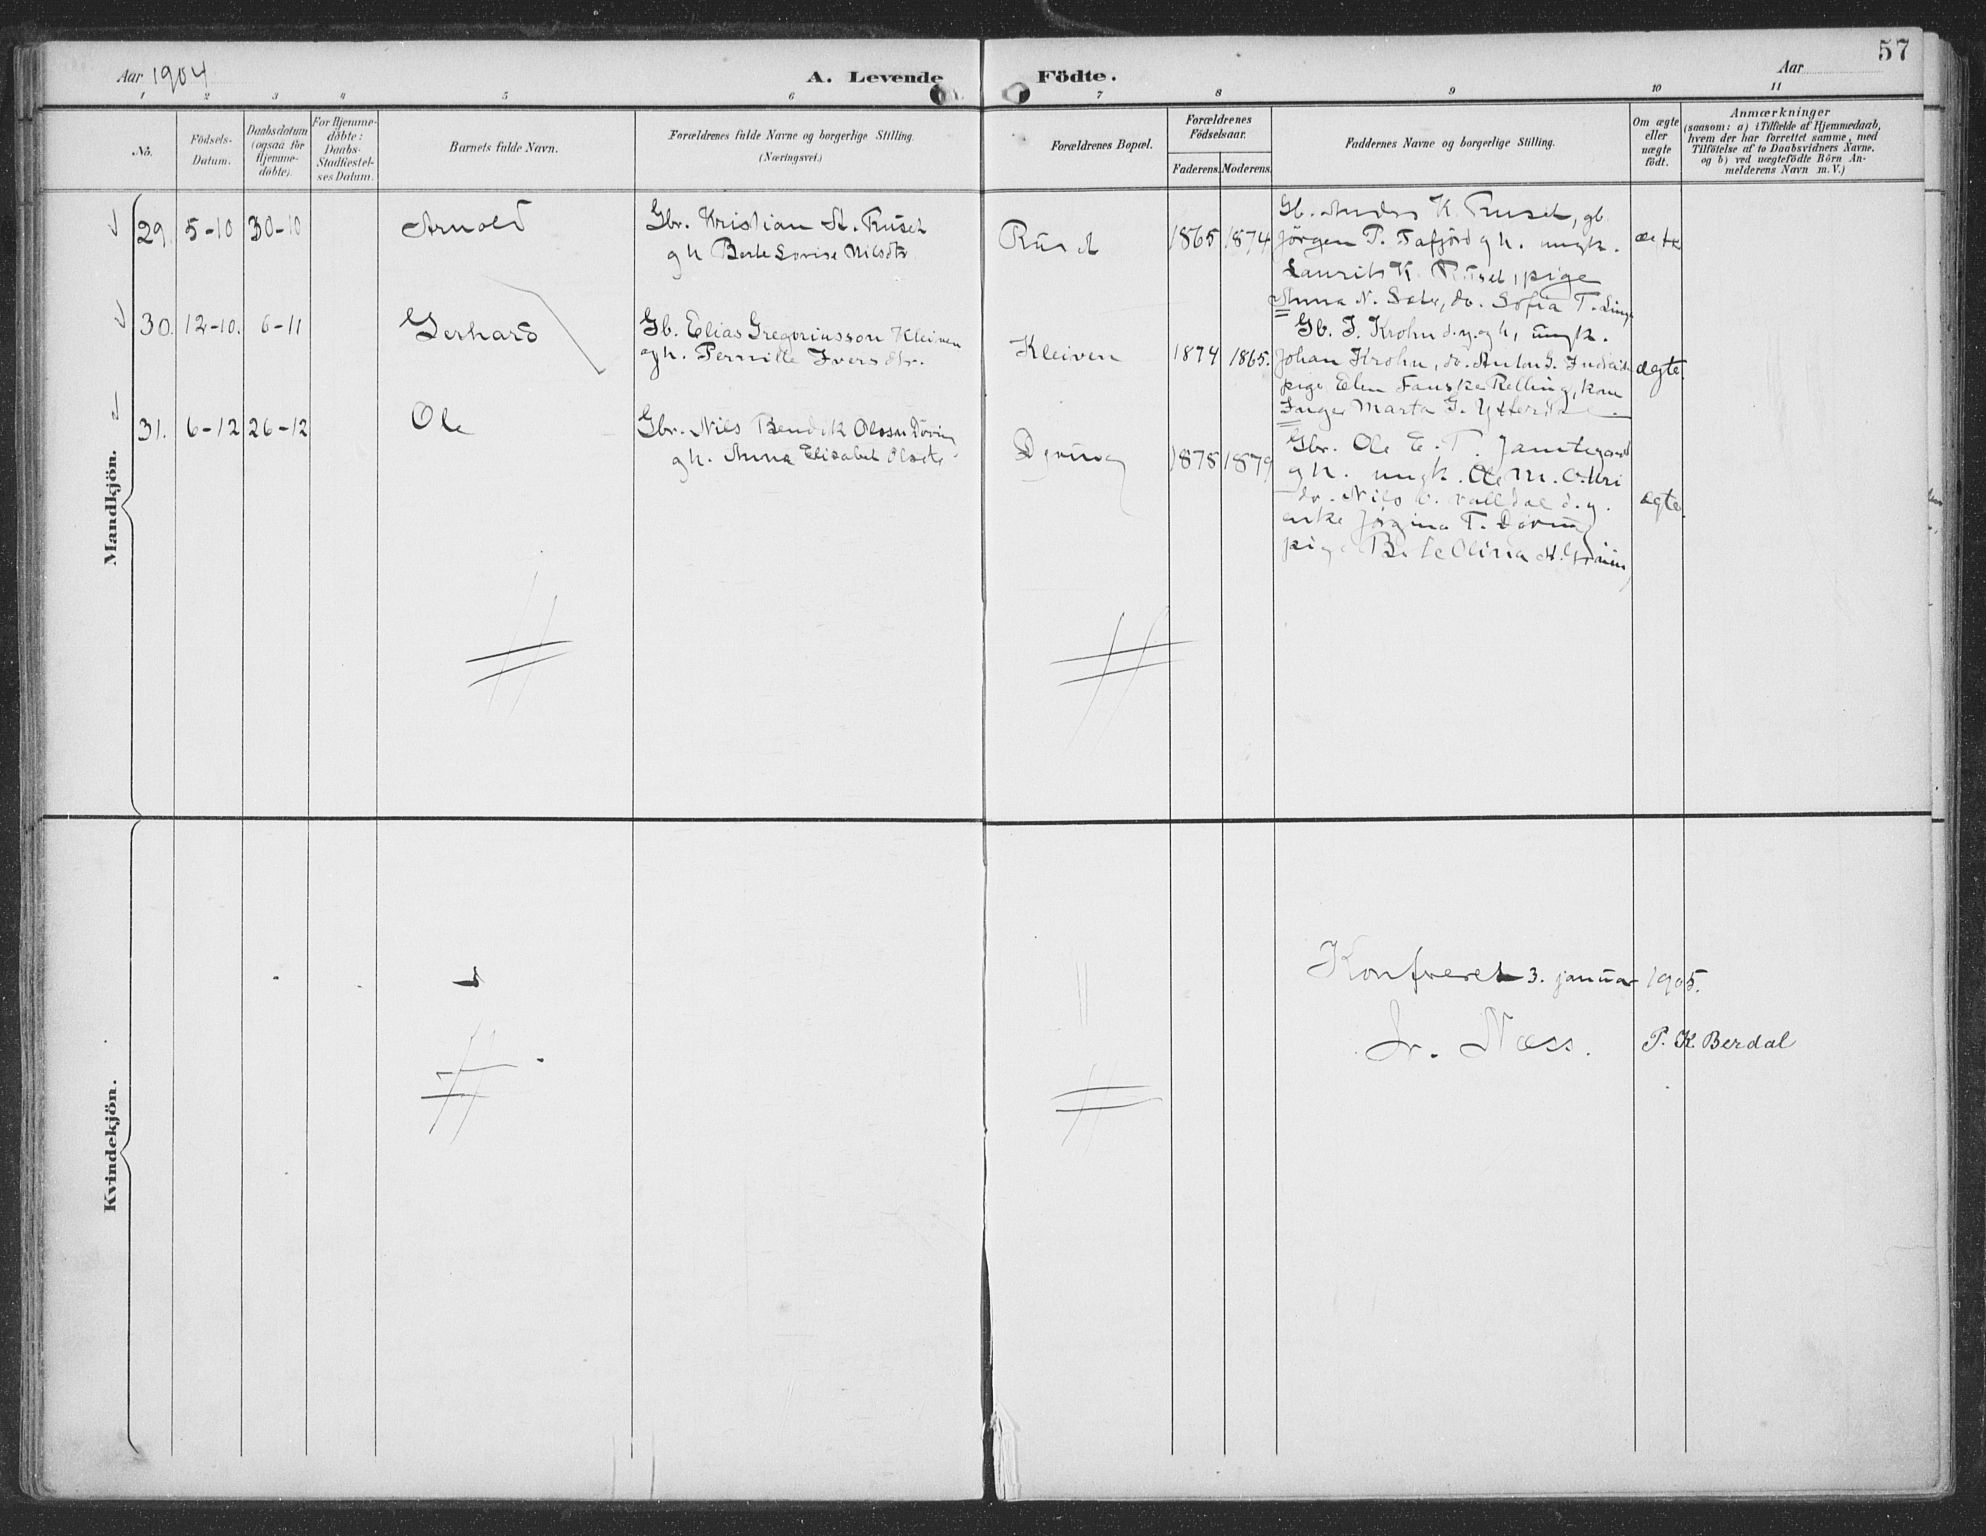 57
Aar 1904
A. Levende Födte.
Aar
1 2 3 4 5 6 7 8 9 10 11
No.
Födsels-
Datum.
Daabsdatum
(ogsaa for
Hjemme-
döbte).
For Hjemme-
döbte:
Daabs-
Stadfæstel-
ses Datum.
Barnets fulde Navn.
Forældrenes fulde Navne og borgerlige Stilling.
(Næringsvei.)
Forældrenes Bopæl.
Forældrenes
Födselsaar.
Faderens. Moderens.
Faddernes Navne og borgerlige Stilling.
Om ægte
eller
uægte
födt.
Anmærkninger
(saasom: a) i Tilfælde af Hjemmedaab,
hvem der har forrettet samme, med
Tilföielse af to Daabsvidners Navne,
og b) ved uægtefödte Börn An-
melderens Navn m. V.)
Mandkjön.
29. 5-10 30-10
Arnold
Gbr. Kristian A. Ruset
og h. Berte Lovise Nilsdtr
Ruset
1865 1874
Gb. Anders K. Ruset, gb.
Jörgen P. Tafjord og h. ungk.
Laurits K. Ruset, pige
Anna N. Sæter, do. Sofia T. Linge
ægte
30. 12-10. 6-11
Gerhard
Gb. Elias Gregoriusson Kleiven
og h. Pernille Iversdtr.
Kleiven
1874 1865.
Gb. I. Krohn d.y. og h, ungk.
Johan Krohn, do. Anton G.
pige Elen Fauske Relling, kone
Inger Marta G.
ægte.
31. 6-12 26-12
Ole
Gbr. Nils Bendik Olsson Döving
og h. Anna Elisabet Olsdtr
Döving
1878 1879
Gbr. Ole E. T. Jamtegaard
og h. ungk. Ole M. O. Uri
do. Nils O. Valldal d.y.
enke Jörgine T. Döving
pige Berte Olina
ægte.
Kvindekjön.
Konfereret 3. januar 1905.
Jr. Næss. P. K. Berdal